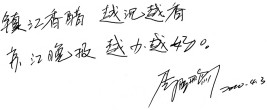 镇江香醋 越沉越香
京江晚报 越办越好。
2020.4.3